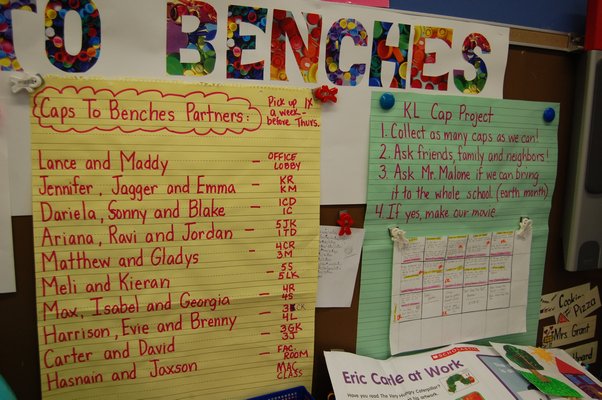 TO BENCHES
Caps To Benches Partners:
Pick up 1x
a week-
before Thurs.
Lance and Maddy - OFFICE LOBBY
Jennifer, Jagger and Emma - KR KM
Dariela, Sonny and Blake - 1CD 1C
Ariana, Ravi and Jordan - 5JK 1TD
Matthew and Gladys - 4CR 3M
Meli and Kieran - 5S 5LK
Max, Isabel and Georgia - 4R 4S
Harrison, Evie and Brenny - 4L
Carter and David - 3GK 3J
Hasnain and Jaxson - FAC. ROOM
MAC CLASS
KL Cap Project
1. Collect as many caps as we can!
2. Ask friends, family and neighbors!
3. Ask Mr. Malone if we can bring
it to the whole school. (earth month)
4 If yes, make our movie
SCHOLASTIC
Eric Carle at Work
Have you read The Very Hungry Caterpillar?
Cookie
Pizza
Mrs. Grant